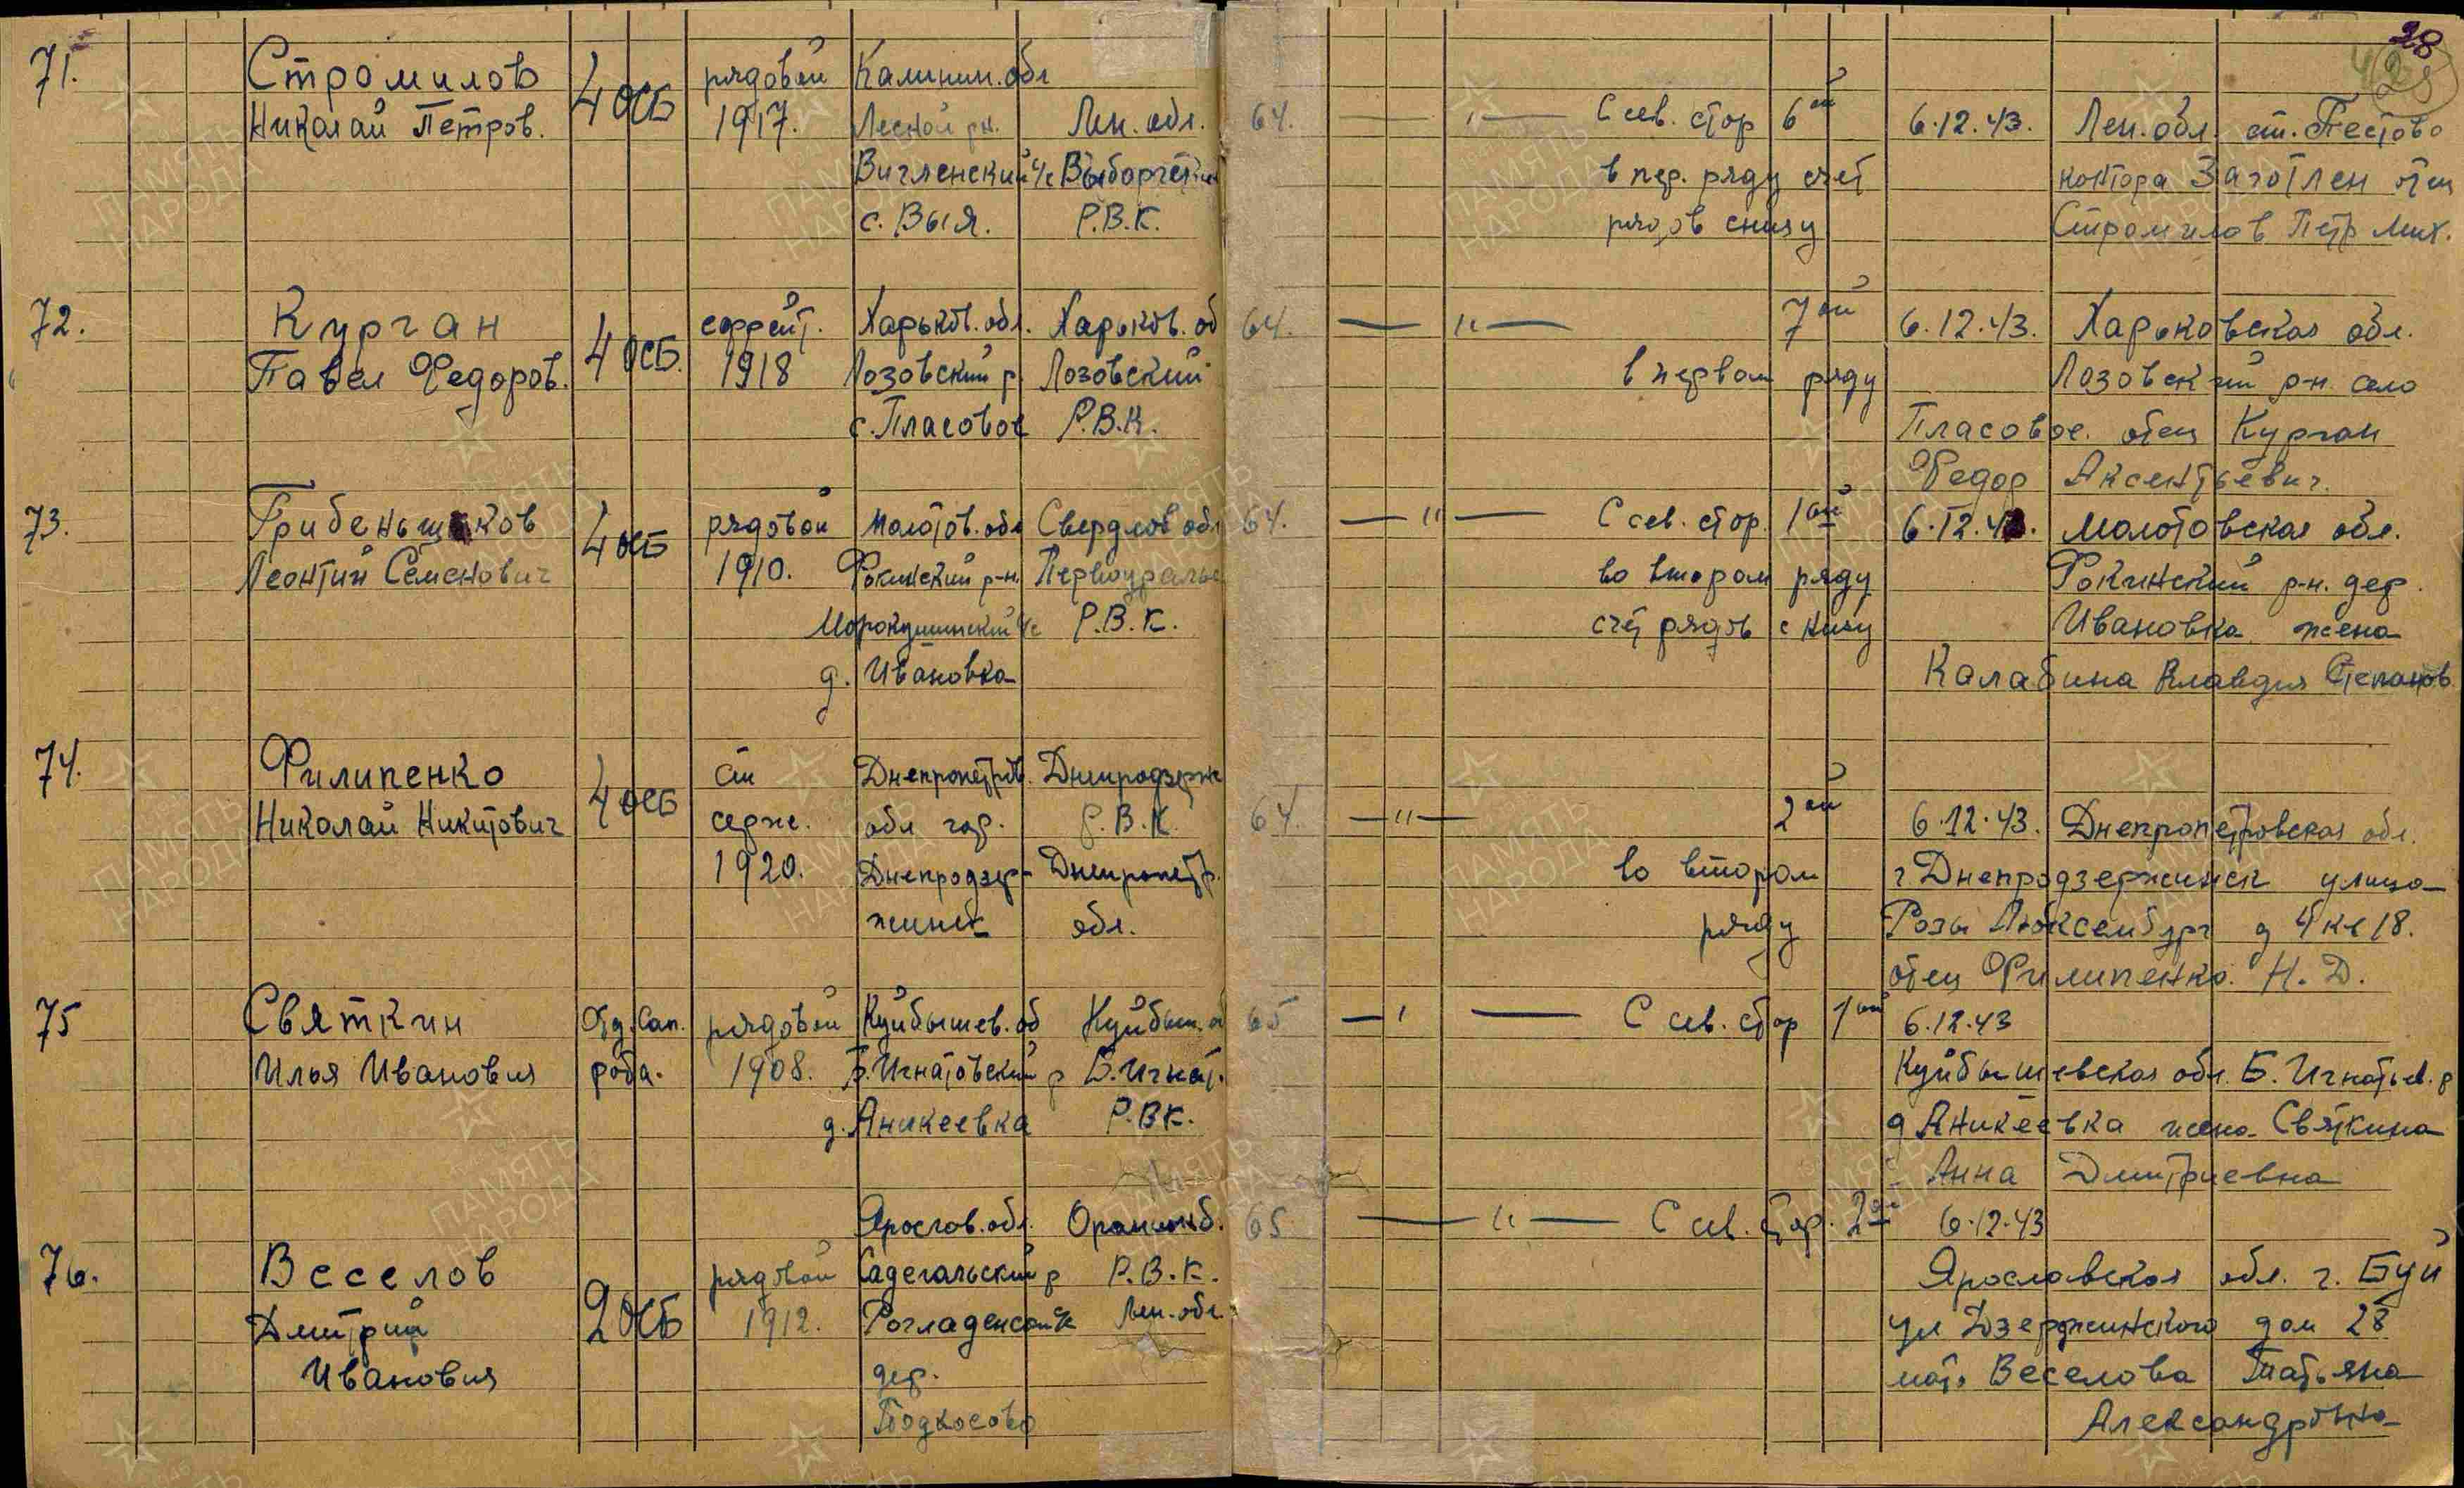 28
28
71. Стромилов 4 ОСБ рядовой Калинин. обл
Николай Петров. 1917. Лесной рн. Лен. обл. 64. —"— С сев. стор 6ой 6.12.43. Лен. обл. ст. Пестово
с/с Выборгский в пер. ряду счет контора Заготлен отец
с. Выя. Р.В.К. рядов снизу Стромилов Петр Мих.
72. Курган 4 ОСБ. ефрейт. Харьков. обл. Харьков. об 64. —"— 7ой 6.12.43. Харьковская обл.
Павел Федоров. 1918 Лозовский р Лозовский в первом ряду Лозовский р-н. село
с. Пласовое Р.В.К. Пласовое. отец Курган
Федор Аксентьевич.
73. Грибеньщиков 4 ОСБ рядовой Молотов. обл Свердлов обл 64. —"— С сев. стор. 1ый 6.12.43. Молотовская обл.
Леонтий Семенович 1910. Фокинский р-н. Первоуральс во втором ряду Фокинский р-н. дер.
с/с Р.В.К. счет рядов с низу Ивановка жена
д. Ивановка Калабина Клавдия Степанов.
74. Филипенко 4 ОСБ ст Днепропетров. Днепродзерж
Николай Никитович серж. обл гор. Р.В.К. 64. —"— 2ой 6.12.43. Днепропетровская обл.
1920. Днепродзер- Днепропетр. во втором г. Днепродзержинск улица
жинск обл. ряду Розы Люксембург д 4 кв 18.
отец Филипенко. Н. Д.
75 Святкин Отд. Сап. рядовой Куйбышев. об Куйбыш. о 65 —"— С сев. стор 1ый 6.12.43
Илья Иванович рота. 1908. Б. Игнатовский р Б. Игнат. Куйбышевская обл. Б. Игнатьев. р
д. Аникеевка Р.В.К. д Аникеевка жена Святкина
Анна Дмитриевна
Яросл​ав. обл. Ораниенб. 65 —"— С сев. стор. 2ой 6.12.43
76. Веселов 2 ОСБ рядовой р Р.В.К. Ярославская обл. г. Буй
Дмитрий 1912. с/с Лен. обл. ул Дзержинского дом 28
Иванович дер. мать Веселова Татьяна
Подкосово Александровна